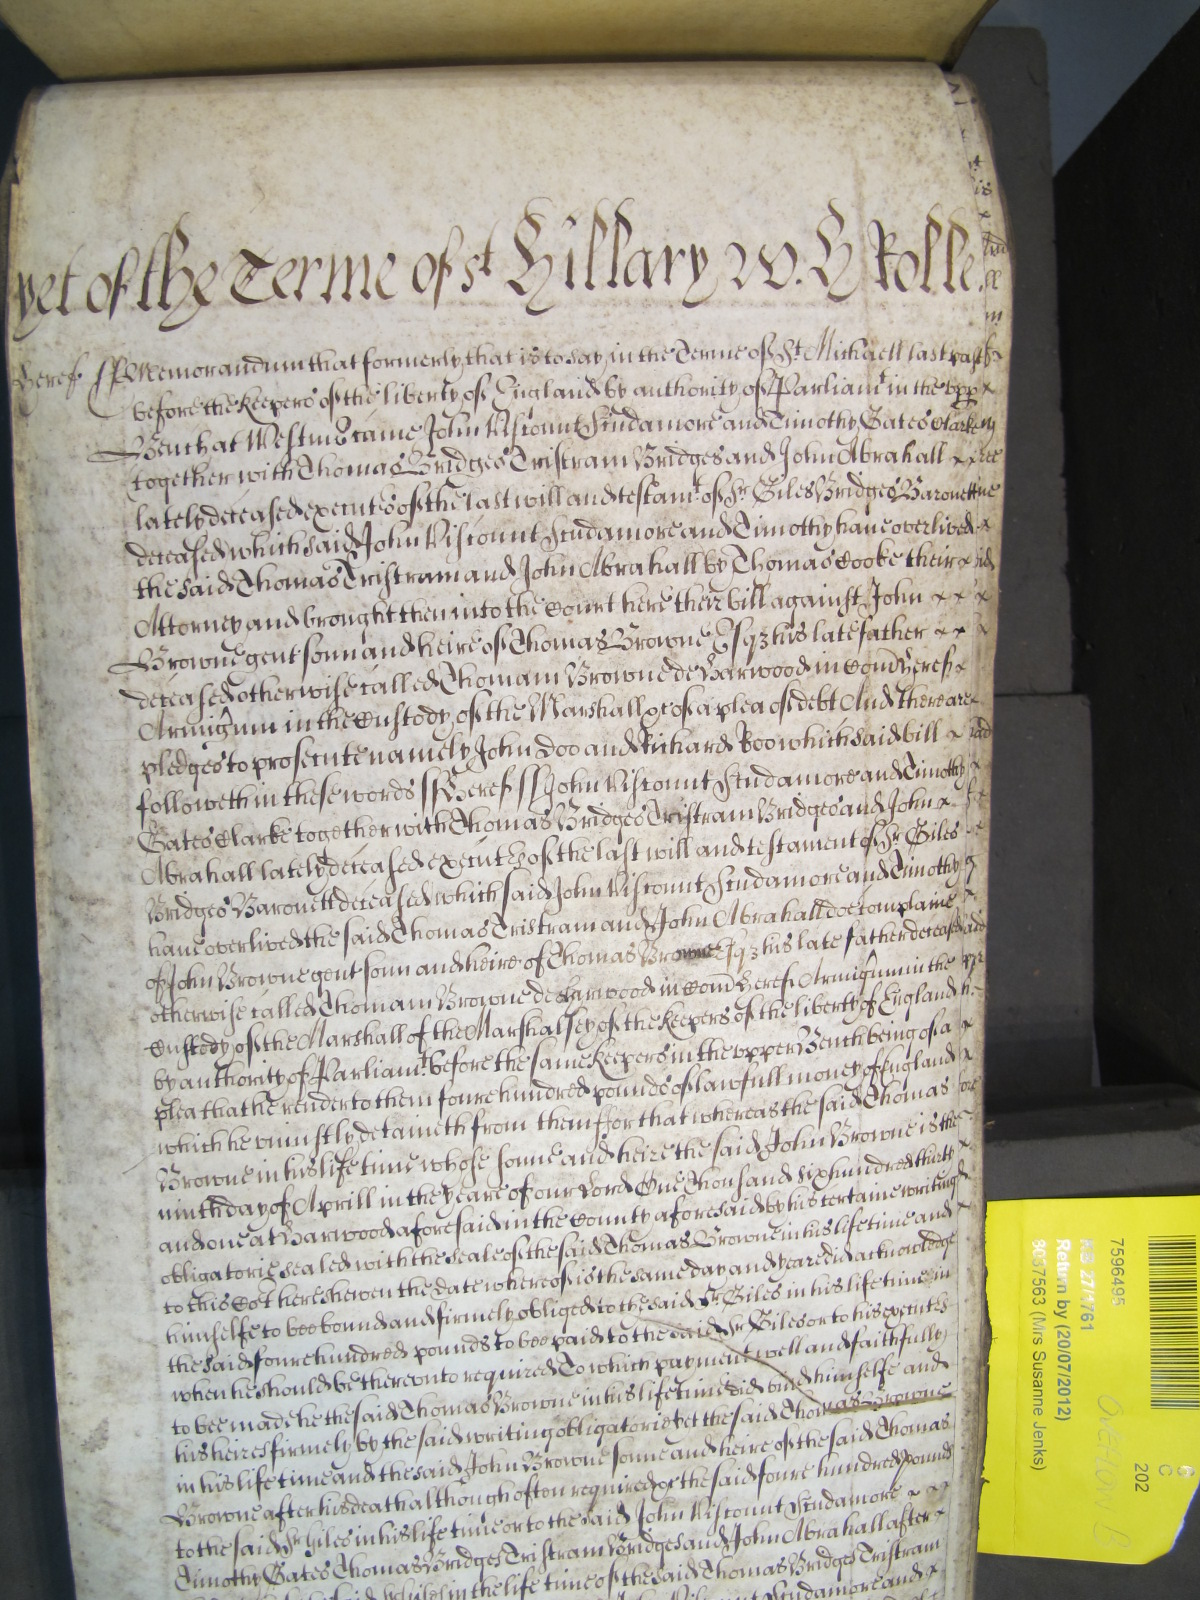 yet of the Terme of st Hillary W. H Rolle
Heref ss Memorandum that formerly that is to say in the Terme of St Michaell last past
before the keepers of the liberty of England by authority of Parliamt in the upp
Bench at Westmr came John Viscount Scudamore and Timothy Gates Clarke
together with Thomas Bridges Tristram Bridges and John Abrahall x x
lately deceased executrs of the last will and testamt of Sr Giles Bridges Baronett
deceased which said John Viscount Scudamore and Timothy have overlived
the said Thomas Tristram and John Abrahall by Thomas Cooke their x
Attorney and brought then into the Court here their bill against John x x x
Browne gent sonn and heire of Thomas Browne Esqz his late father x x x
deceased otherwise called Thomam Browne de Harwood in Com Heref x
Armigum in the Custody of the Marshall &c of a plea of debt And there are
pledges to prosecute namely John Doo and Richard Roo which said bill x
followeth in these words ss Heref ss John Viscount Scudamore and Timothy
Gates Clarke together with Thomas Bridges Tristram Bridges and John x
Abrahall lately deceased executrs of the last will and testament of Sr Giles
Bridges Baronett deceased which said John Viscount Scudamore and Timothy
have overlived the said Thomas Tristram and John Abrahall doe complaine
of John Browne gent sonn and heire of Thomas Browne Esqz his late father deceased
otherwise called Thomam Browne de Harwood in Com Heref Armigum in the
Custody of the Marshall of the Marshalsey of the keepers of the liberty of England
by authority of Parliamt before the same keepers in the upper Bench being of a
plea that he render to them foure hundred pounds of lawfull money of England
which he uniustly detaineth from them ffor that whereas the said Thomas
Browne in his life time whose sonne and heire the said John Browne is the
ninth day of Aprill in the yeare of our Lord One Thousand six hundred thirty
and one at Harwood aforesaid in the County aforesaid by his certaine writing
obligatorie sealed with the seale of the said Thomas Browne in his life time and
to this Cot here shewen the date whereof is the same day and yeare did acknowledge
himselfe to bee bound and firmely obliged to the said Sr Giles in his life time in
the said foure hundred pounds to bee paid to the said Sr Giles or to his executrs
when he should be thereunto required To which payment well and faithfully
to bee made he the said Thomas Browne in his life time did bind himselfe and
his heires firmely by the said writing obligatorie yet the said Thomas Browne
in his life time and the said John Browne sonne and heire of the said Thomas
Browne after his death although often required of the said foure hundred pounds
to the said Sr Giles in his life time or to the said John Viscount Scudamore x x x
Timothy Gates Thomas Bridges Tristram Bridges and John Abrahall after x
in the life time of the said Thomas Bridges Tristram
John Viscount Scudamore and x
7596495
C
202
KB 27/1761
Return by (20/07/2012)
8057563 (Mrs Susanne Jenks)